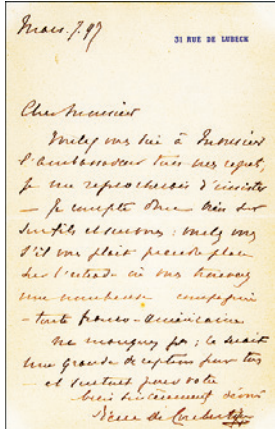 Mars. 7. 97
31 RUE DE LUBECK
Cher Monsieur
Voulez vous dire à Monsieur
l'ambassadeur tous mes regrets,
je me reprocherais d'insister
— Je compte donc bien sur
: voulez vous
s'il vous plaît prendre place
sur l'estrade où vous trouverez
une nombreuse compagnie
— toute franco-américaine
ne manquez pas; ce serait
une grande déception pour tous
— et surtout pour votre
bien sincèrement dévoué
Pierre de Coubertin